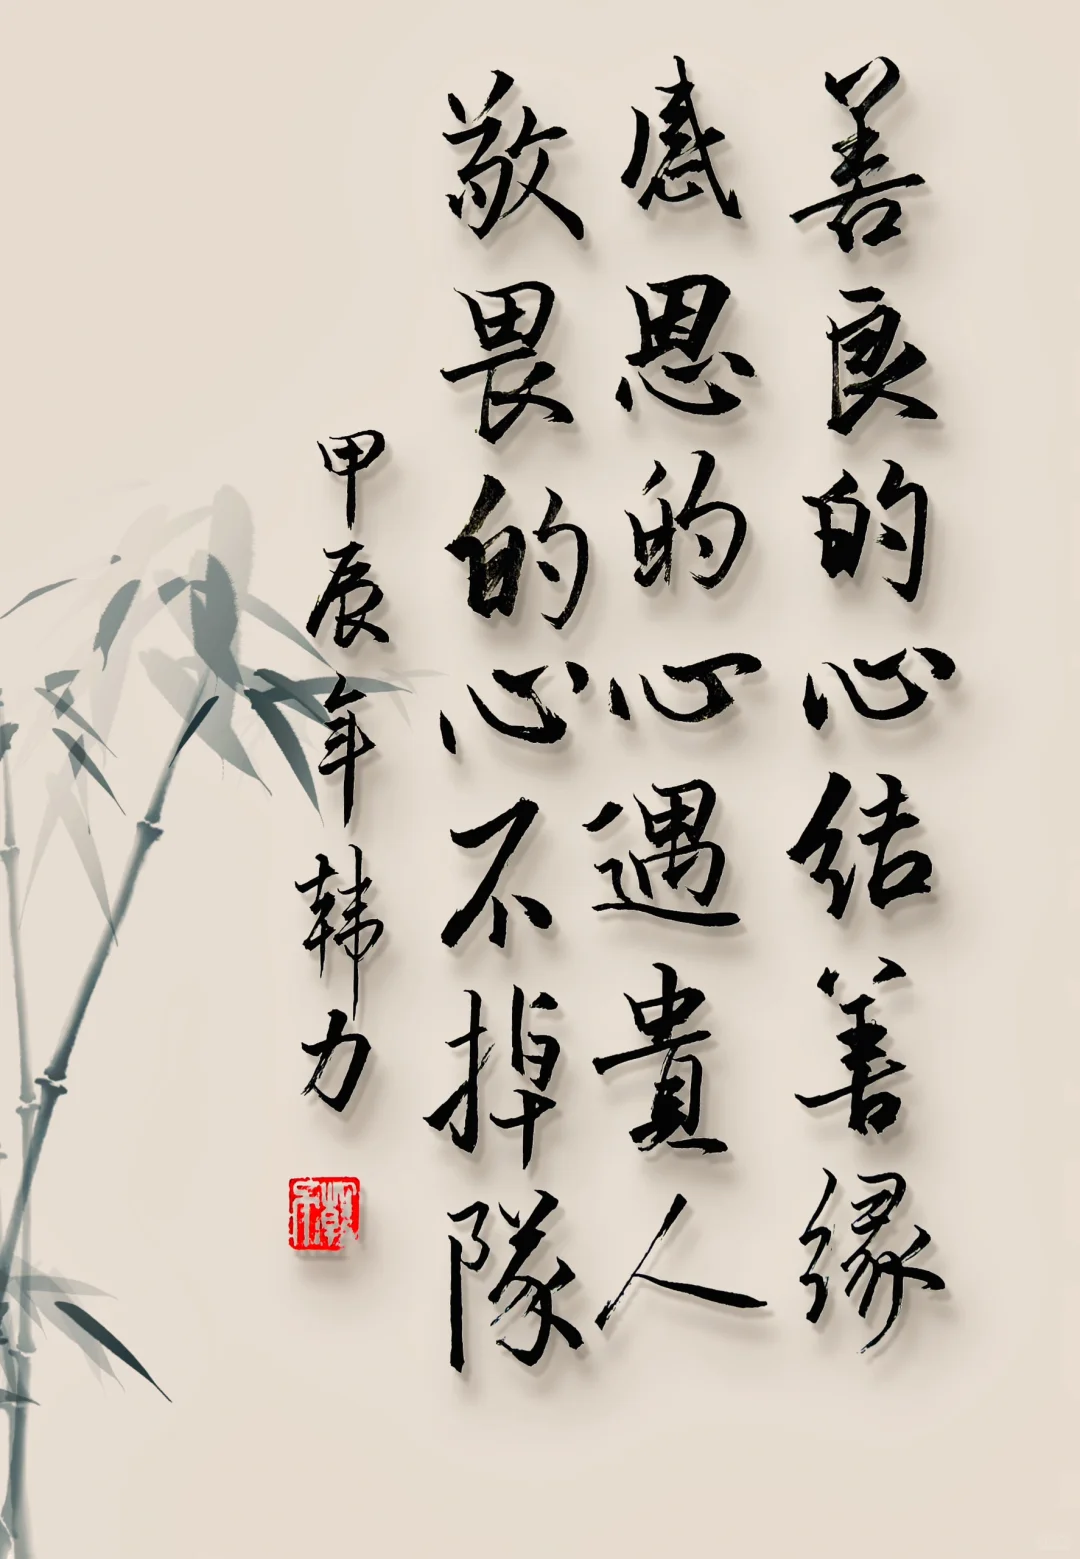 善良的心结善缘
感恩的心遇貴人
敬畏的心不掉隊
甲辰年韩力